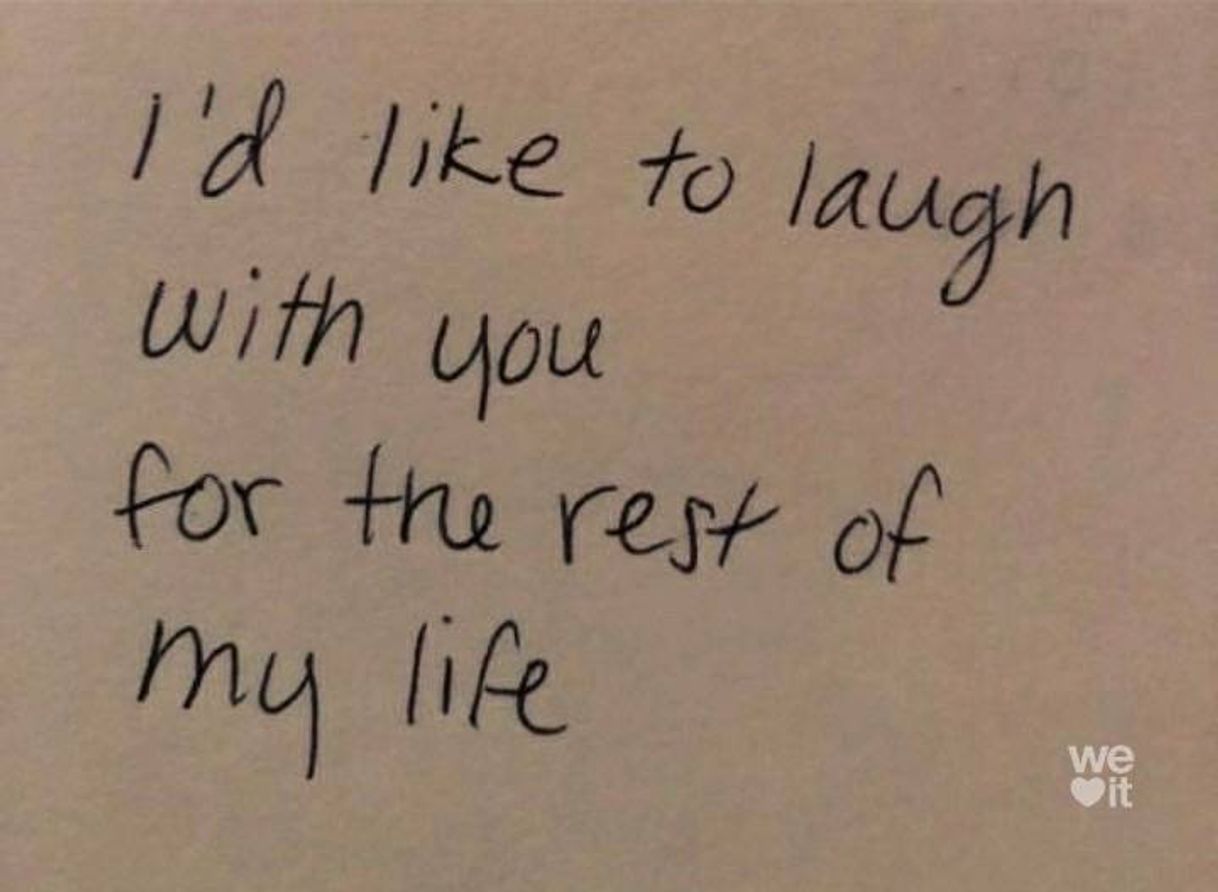 I'd like to laugh
with you
for the rest of
my life
we
♥it